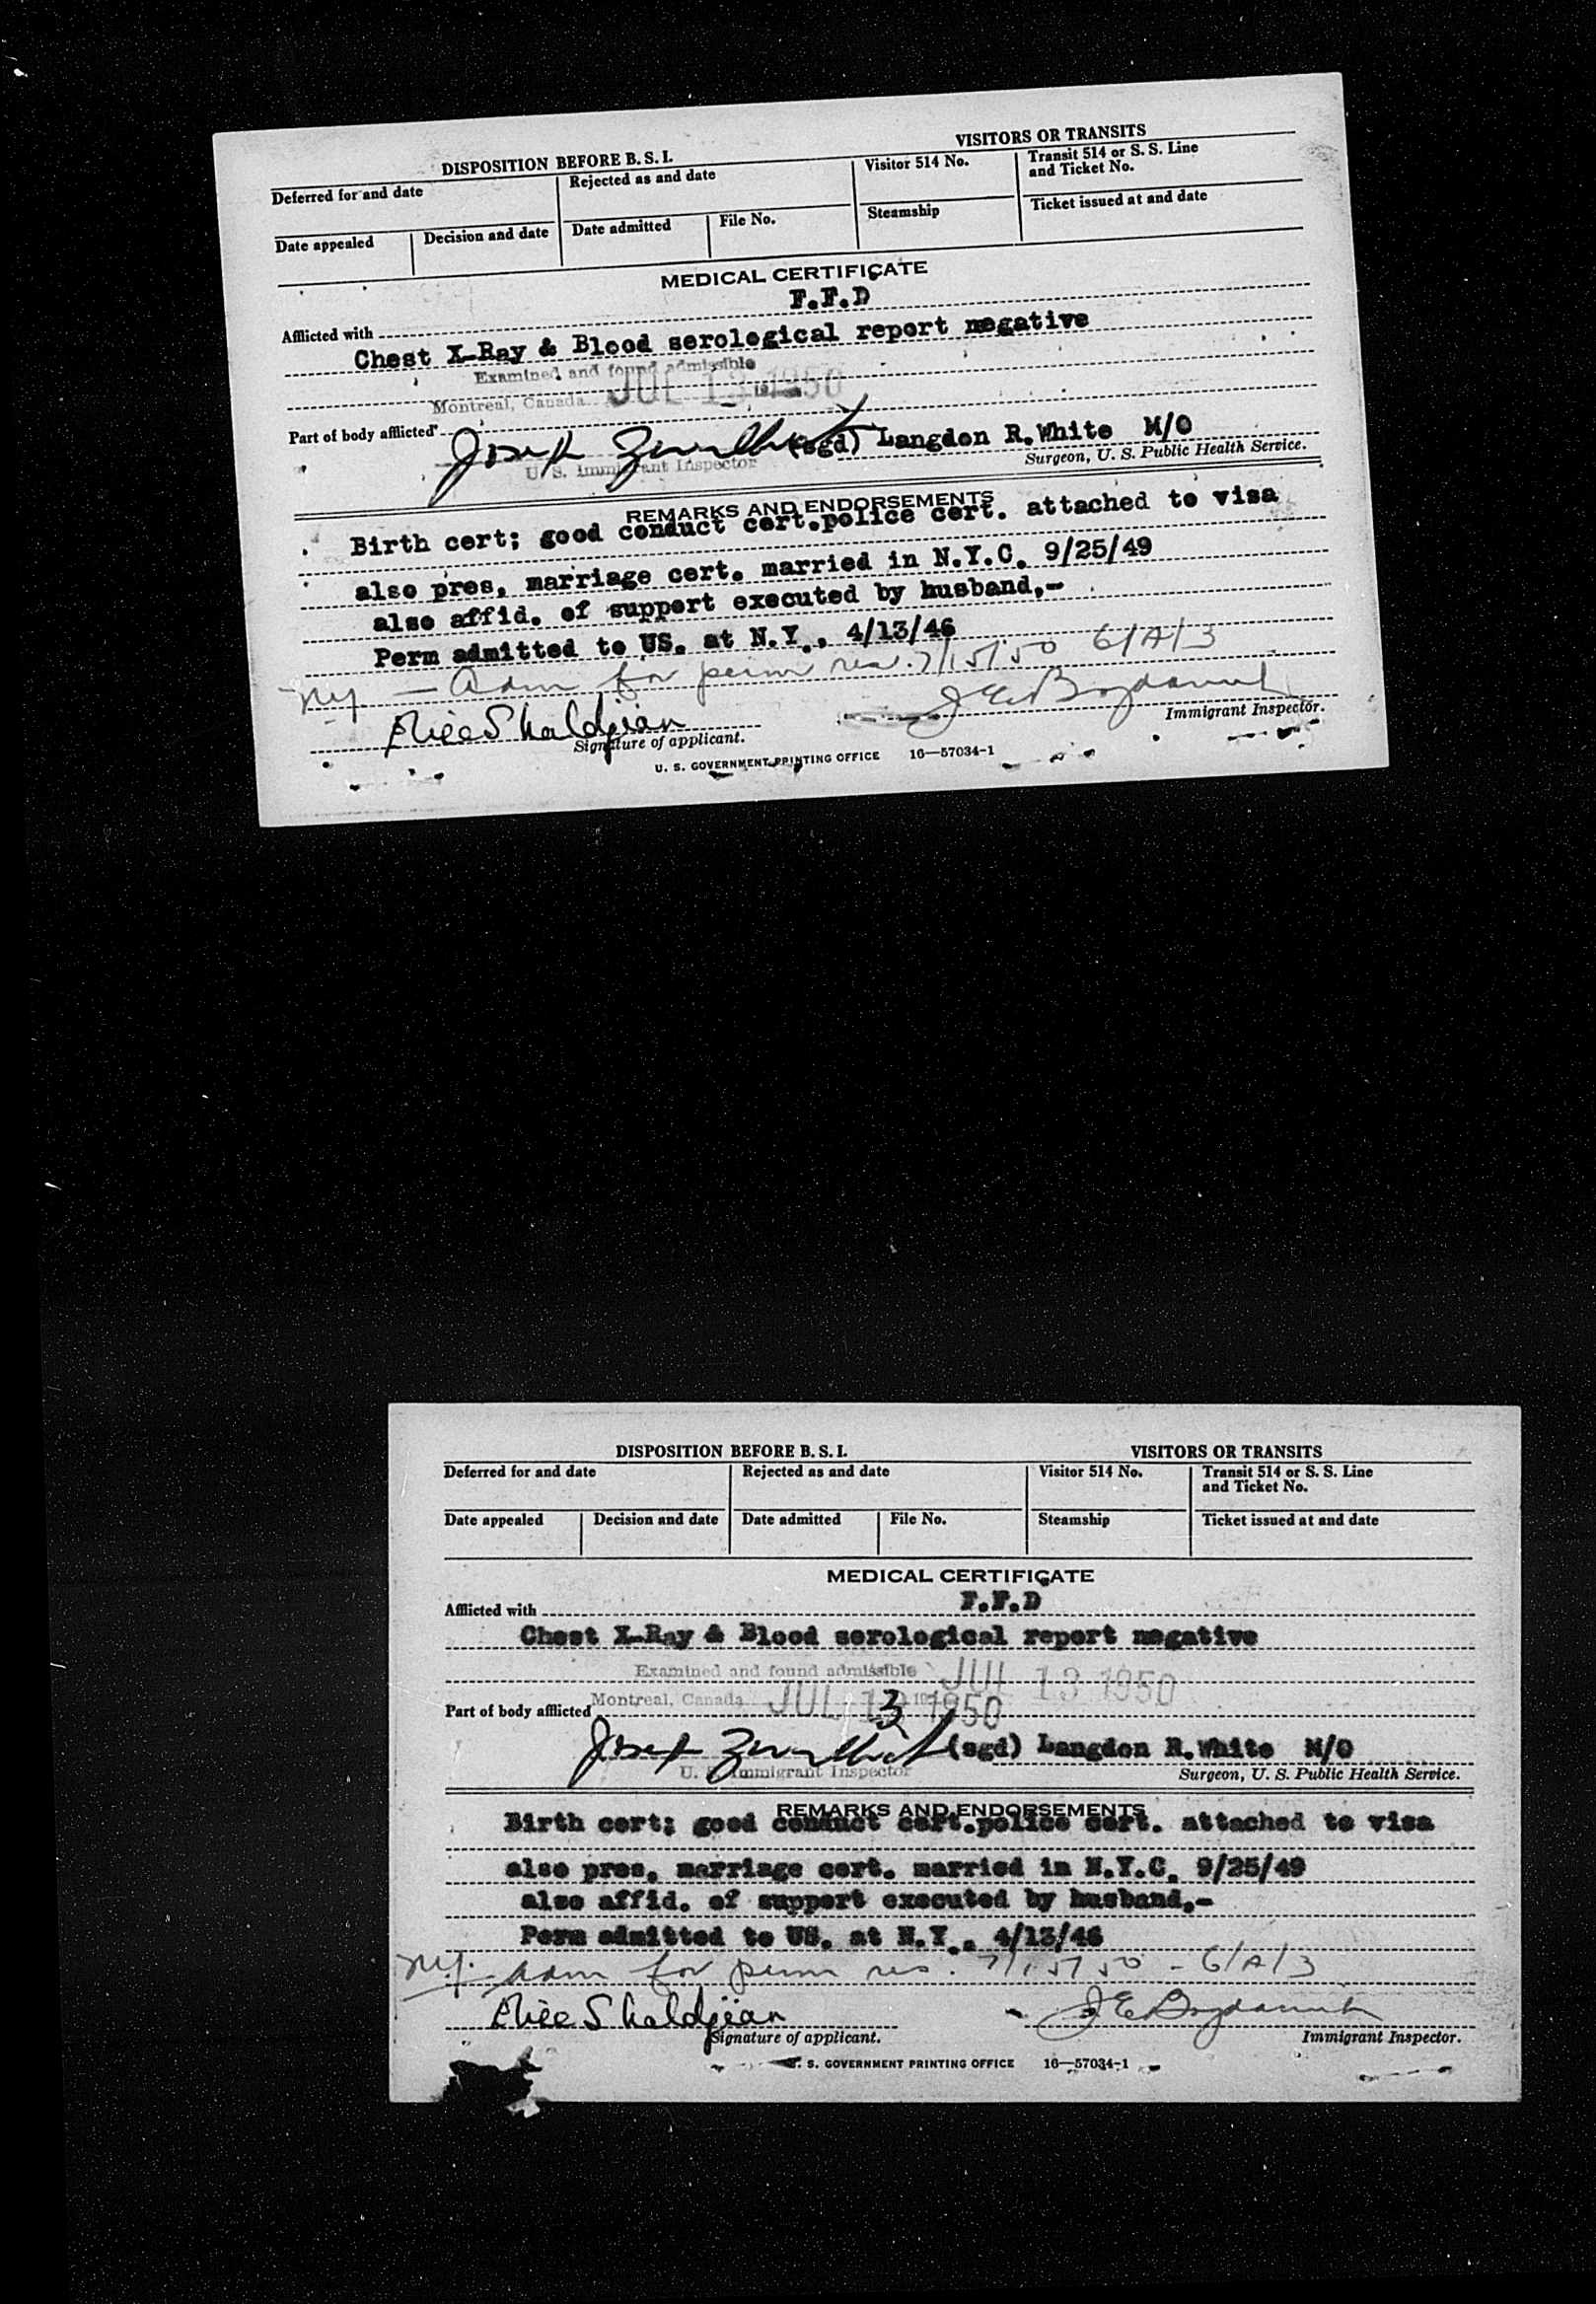 DISPOSITION BEFORE B. S. I.
VISITORS OR TRANSITS
Deferred for and date
Rejected as and date
Visitor 514 No.
Transit 514 or S. S. Line
and Ticket No.
Date appealed
Decision and date
Date admitted
File No.
Steamship
Ticket issued at and date
MEDICAL CERTIFICATE
F.F.D
Afflicted with
Chest X-Ray & Blood serological report negative
Examined and found admissible
Montreal, Canada JUL 13 1950
Part of body afflicted
Joseph (sgd) Langdon R.White M/O
U. S. Immigrant Inspector
Surgeon, U. S. Public Health Service.
REMARKS AND ENDORSEMENTS
Birth cert; good conduct cert.police cert. attached to visa
also pres, marriage cert. married in N.Y.C. 9/25/49
also affid. of support executed by husband,-
Perm admitted to US. at N.Y., 4/13/46
NY - Adm for perm res. 7/15/50 6/A/3
Alice Shaldjian
Signature of applicant.
Immigrant Inspector.
U. S. GOVERNMENT PRINTING OFFICE 16—57034-1
DISPOSITION BEFORE B. S. I.
VISITORS OR TRANSITS
Deferred for and date
Rejected as and date
Visitor 514 No.
Transit 514 or S. S. Line
and Ticket No.
Date appealed
Decision and date
Date admitted
File No.
Steamship
Ticket issued at and date
MEDICAL CERTIFICATE
F.F.D
Afflicted with
Chest X-Ray & Blood serological report negative
Examined and found admissible JUL 13 1950
Montreal, Canada JUL 13 1950
Part of body afflicted
Joseph (sgd) Langdon R.White M/O
U. S. Immigrant Inspector
Surgeon, U. S. Public Health Service.
REMARKS AND ENDORSEMENTS
Birth cert; good conduct cert.police cert. attached to visa
also pres, marriage cert. married in N.Y.C. 9/25/49
also affid. of support executed by husband,-
Perm admitted to US. at N.Y., 4/13/46
NY. Adm for perm res. 7/15/50 - 6/A/3
Alice Shaldjian
Signature of applicant.
Immigrant Inspector.
U. S. GOVERNMENT PRINTING OFFICE 16—57034-1